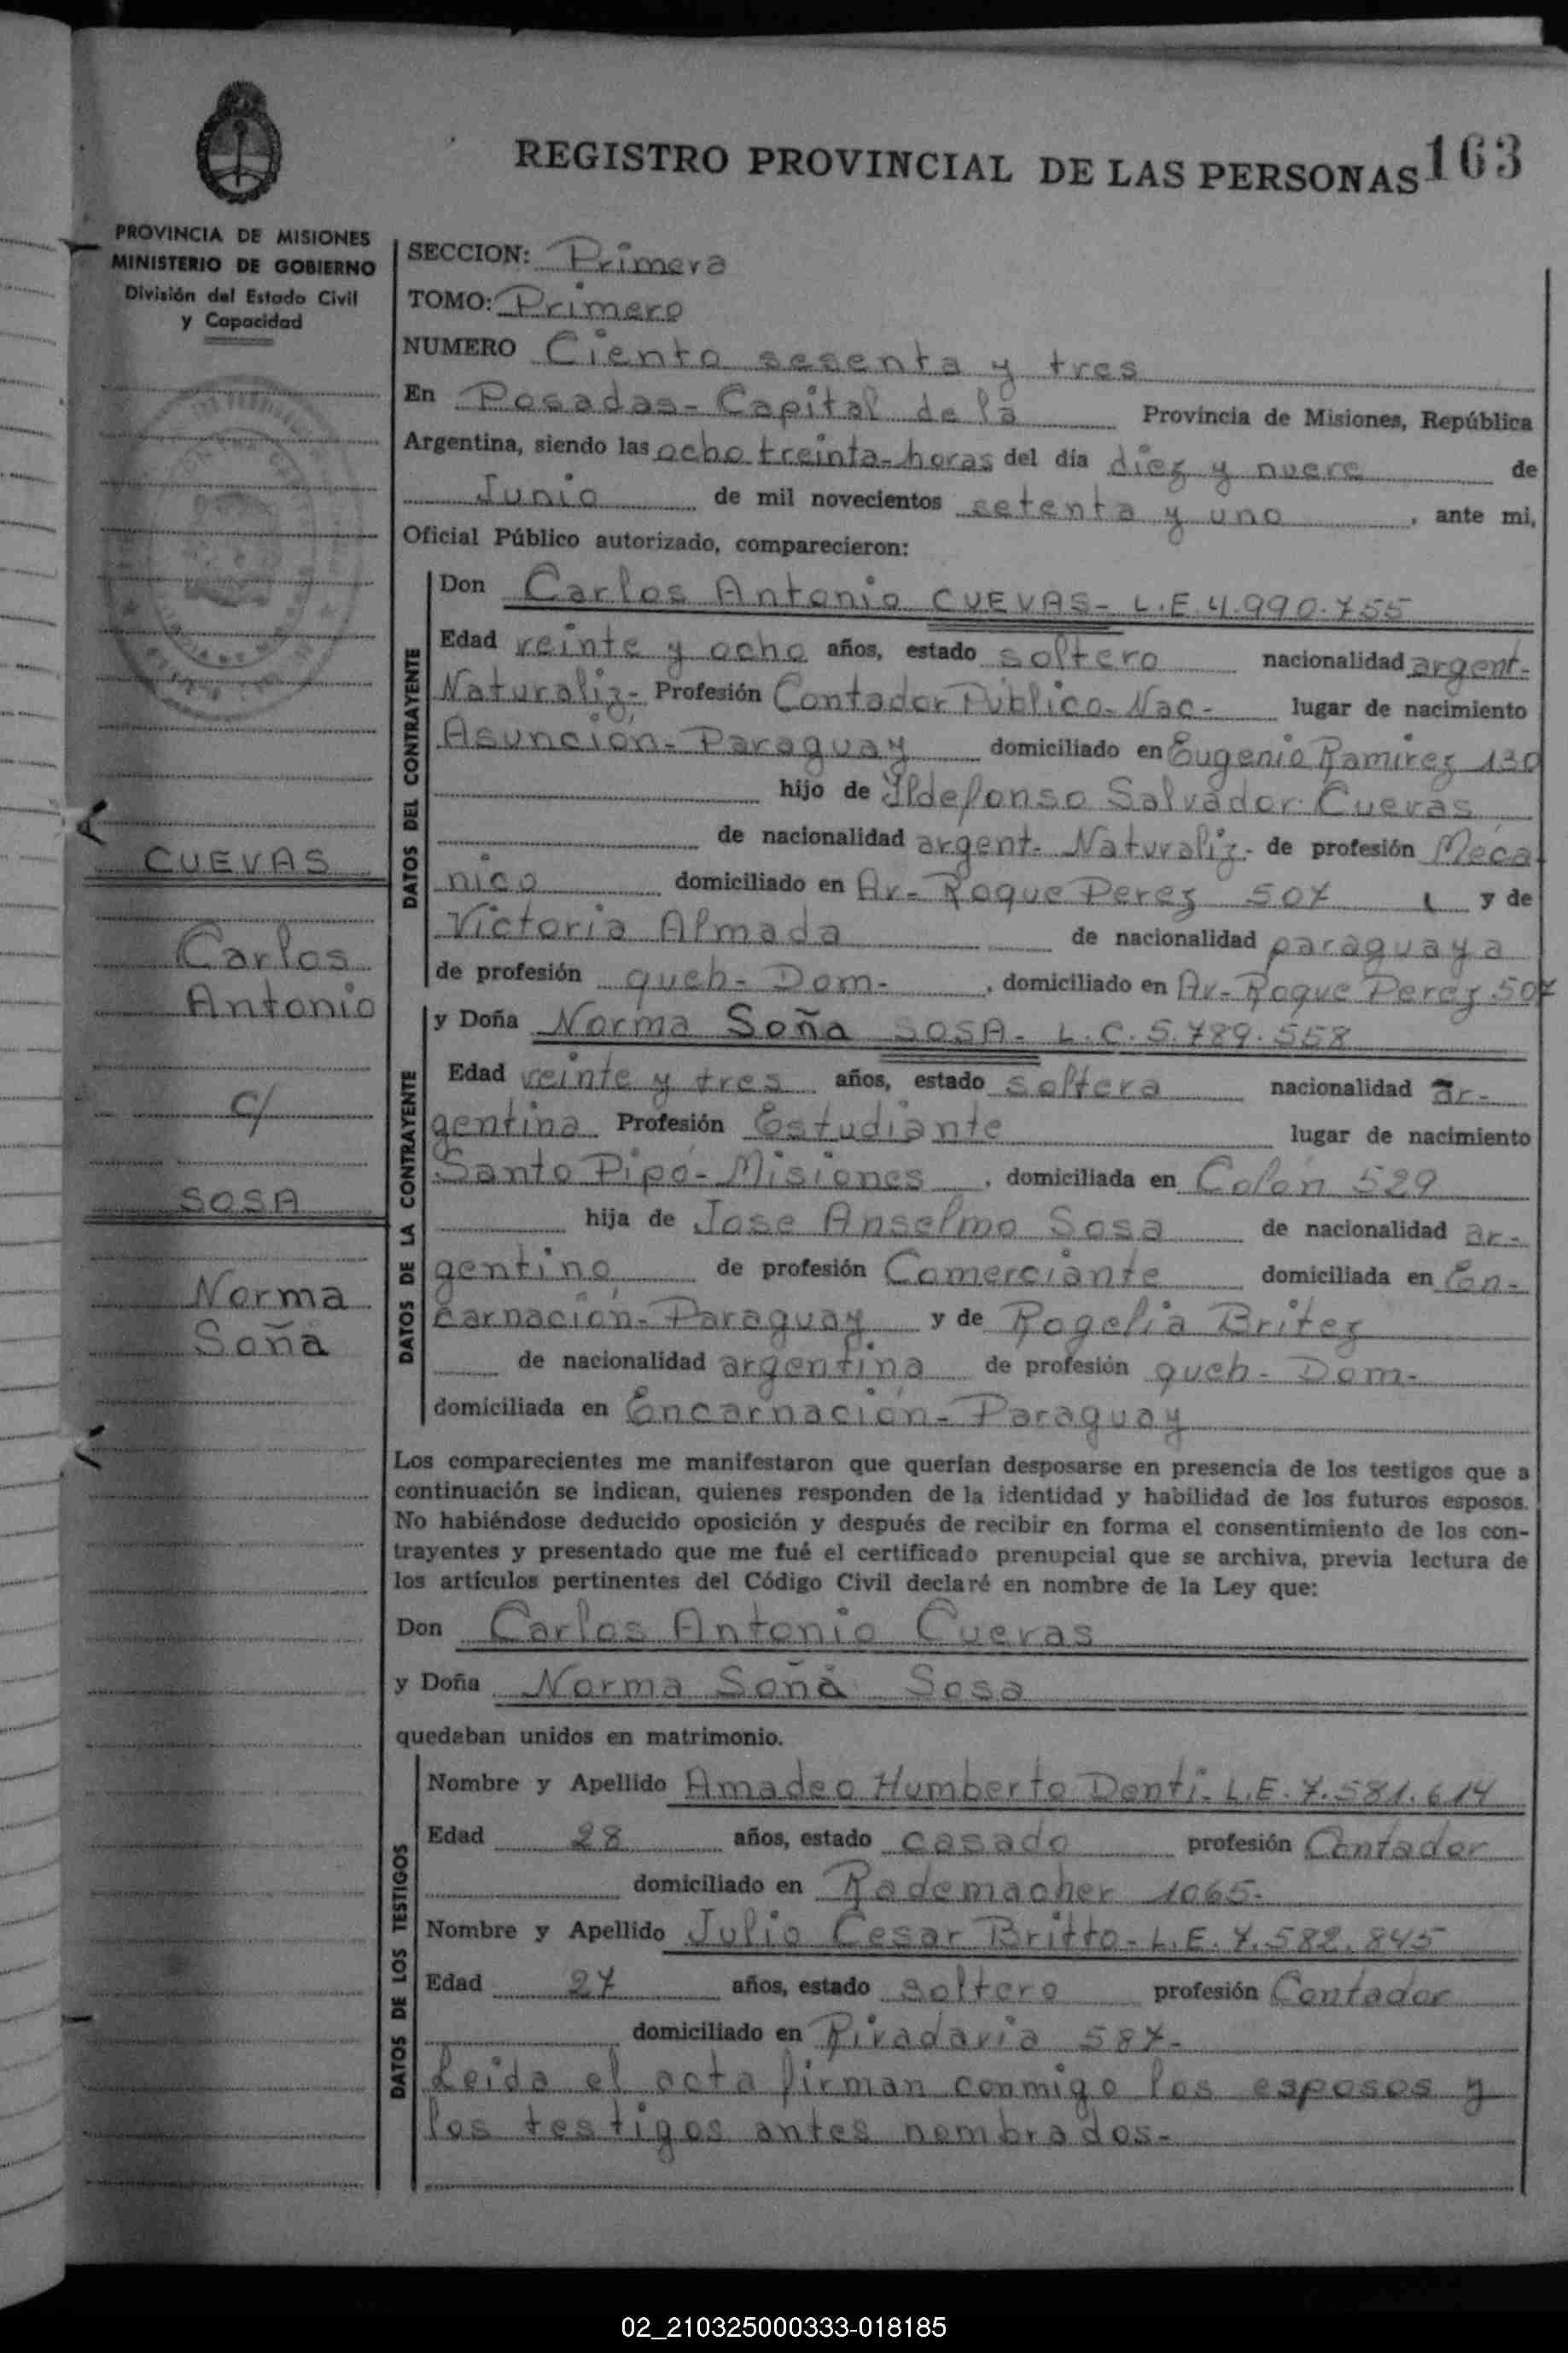 REGISTRO PROVINCIAL DE LAS PERSONAS 163
PROVINCIA DE MISIONES
MINISTERIO DE GOBIERNO
División del Estado Civil
y Capacidad
SECCION: Primera
TOMO: Primero
NUMERO Ciento sesenta y tres
En Posadas- Capital de la Provincia de Misiones, República
Argentina, siendo las ocho treinta- horas del día diez y nueve de
Junio de mil novecientos setenta y uno, ante mi,
Oficial Público autorizado, comparecieron:
DATOS DEL CONTRAYENTE
Don Carlos Antonio CUEVAS- L.E. 4.990.755
Edad veinte y ocho años, estado soltero nacionalidad argent-
Naturaliz- Profesión Contador Público- Nac- lugar de nacimiento
Asunción- Paraguay domiciliado en Eugenio Ramirez 130
hijo de Ildefonso Salvador Cuevas
de nacionalidad argent- Naturaliz- de profesión Mecá
nico domiciliado en Av- Roque Perez 507 y de
Victoria Almada de nacionalidad paraguaya
de profesión queh- Dom-, domiciliado en Av- Roque Perez 507
CUEVAS
Carlos
Antonio
c/
SOSA
Norma
Soña
DATOS DE LA CONTRAYENTE
y Doña Norma Soña SOSA- L.C. 5.789.558
Edad veinte y tres años, estado soltera nacionalidad ar-
gentina Profesión Estudiante lugar de nacimiento
Santo Pipó- Misiones, domiciliada en Colón 529
hija de Jose Anselmo Sosa de nacionalidad ar-
gentino de profesión Comerciante domiciliada en En-
carnación- Paraguay y de Rogelia Britez
de nacionalidad argentina de profesión queh- Dom-
domiciliada en Encarnación- Paraguay
Los comparecientes me manifestaron que querían desposarse en presencia de los testigos que a
continuación se indican, quienes responden de la identidad y habilidad de los futuros esposos.
No habiéndose deducido oposición y después de recibir en forma el consentimiento de los con-
trayentes y presentado que me fué el certificado prenupcial que se archiva, previa lectura de
los artículos pertinentes del Código Civil declaré en nombre de la Ley que:
Don Carlos Antonio Cuevas
y Doña Norma Soña Sosa
quedaban unidos en matrimonio.
DATOS DE LOS TESTIGOS
Nombre y Apellido Amadeo Humberto Denti- L.E. 7.581.614
Edad 28 años, estado casado profesión Contador
domiciliado en Rademacher 1065-
Nombre y Apellido Julio Cesar Britto- L.E. 7.582.845
Edad 27 años, estado soltero profesión Contador
domiciliado en Rivadavia 587-
Leida el acta firman conmigo los esposos y
los testigos antes nombrados-
02_210325000333-018185